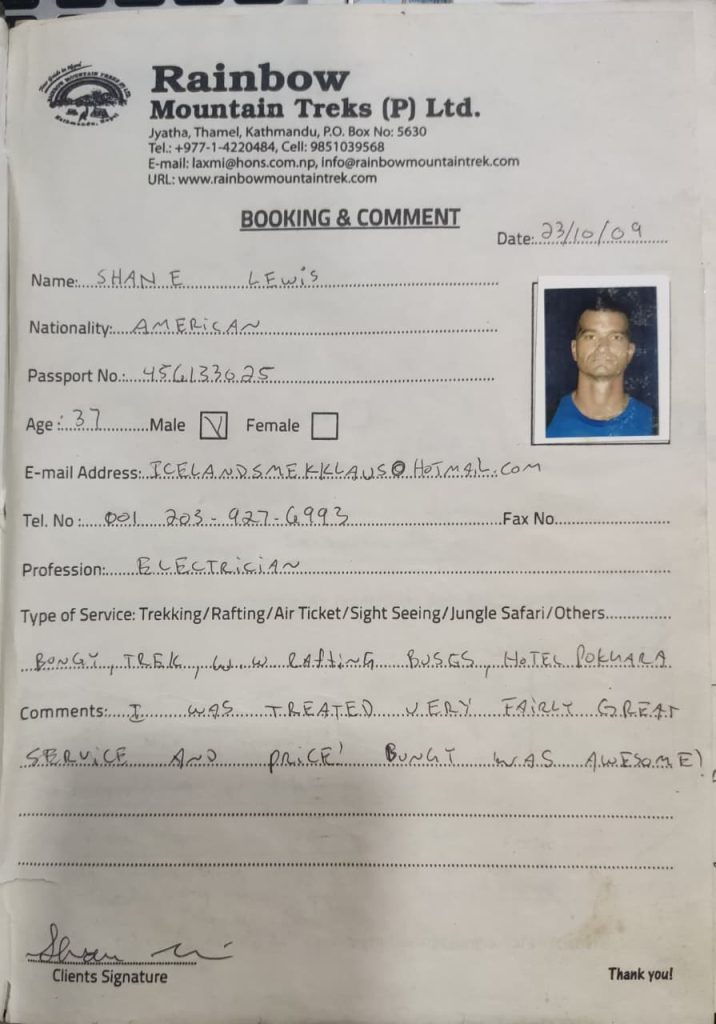 Rainbow
Mountain Treks (P) Ltd.
Jyatha, Thamel, Kathmandu, P.O. Box No: 5630
Tel.: +977-1-4220484, Cell: 9851039568
E-mail: laxmi@hons.com.np, info@rainbowmountaintrek.com
URL: www.rainbowmountaintrek.com
BOOKING & COMMENT
Date: 23/10/09
Name: SHANE LEWIS
Nationality: AMERICAN
Passport No.: 456133025
Age: 37 Male Female
E-mail Address: ICELANDSMEKKLAUS@HOTMAIL.COM
Tel. No: 001 203-927-6993 Fax No.
Profession: ELECTRICIAN
Type of Service: Trekking/Rafting/Air Ticket/Sight Seeing/Jungle Safari/Others
BUNGY, TREK, W.W RAFTING BUSES, HOTEL POKHARA
Comments: I WAS TREATED VERY FAIRLY GREAT
SERVICE AND PRICE! BUNGY WAS AWESOME!
Clients Signature
Thank you!